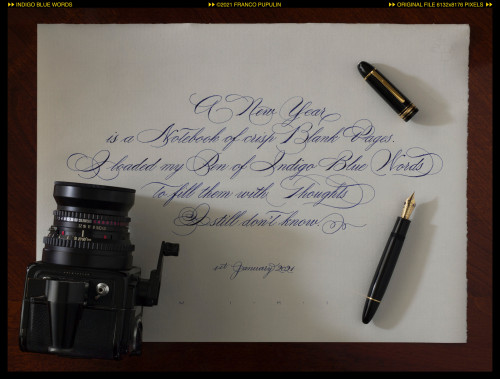 INDIGO BLUE WORDS
©2021 FRANCO PUPULIN
ORIGINAL FILE 6132x8176 PIXELS
A New Year
is a Notebook of crisp Blank Pages.
I loaded my Pen of Indigo Blue Words
to fill them with Thoughts
I still don't know.
1st January 2021